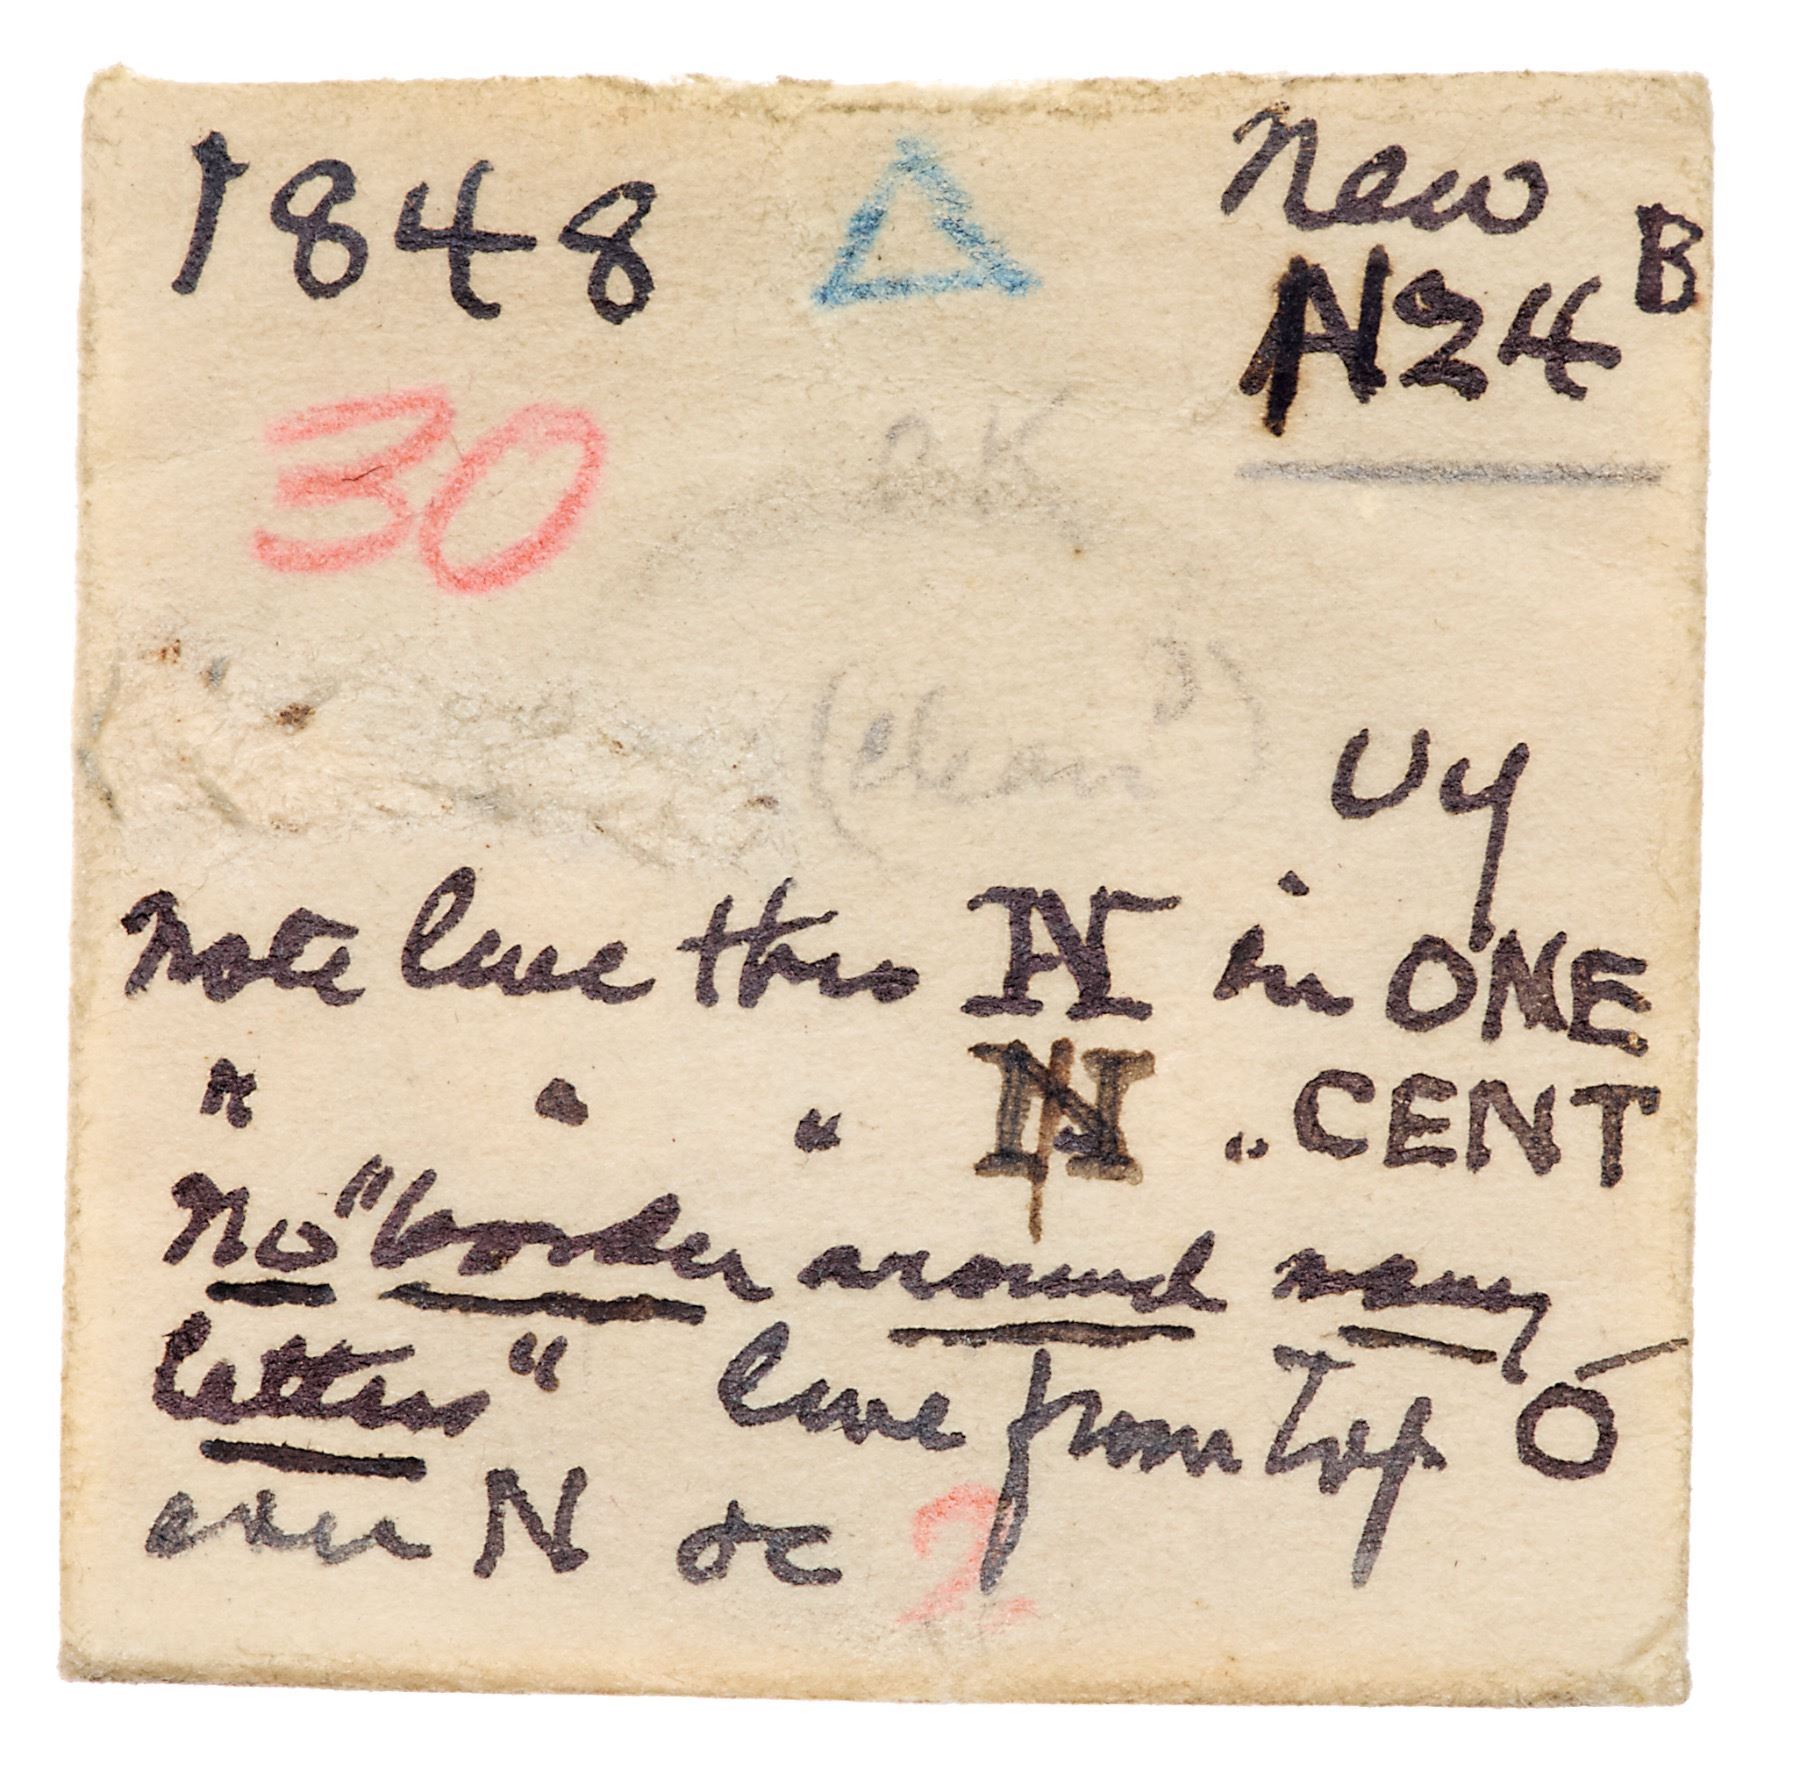 1848 △ New
N24 B
30
OK
(clean)
Note line thru N in ONE
" " " N " CENT
No "border around many
letters" line from Top O
over N &c 2